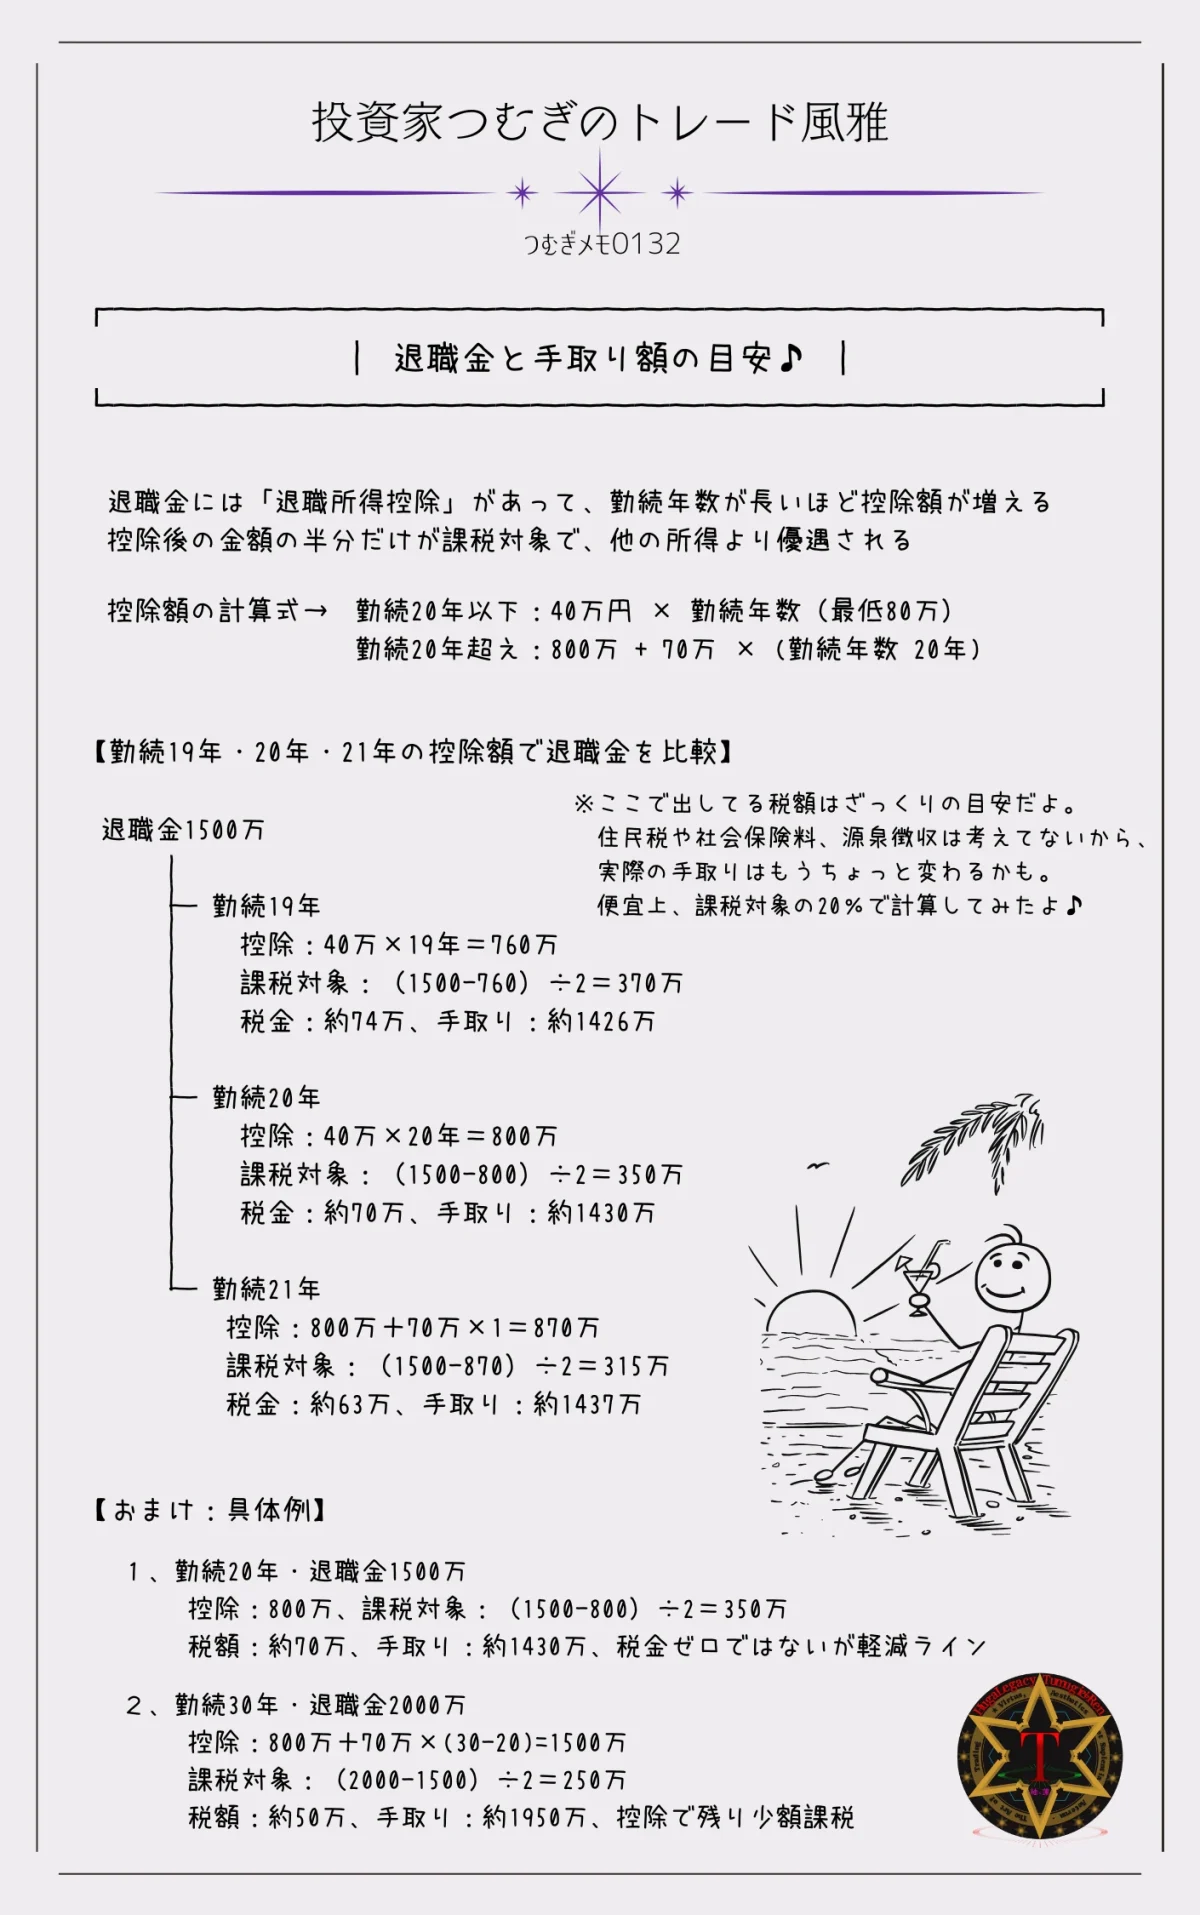 投資家つむぎのトレード風雅
つむぎメモ0132
| 退職金と手取り額の目安♪ |
退職金には「退職所得控除」があって、勤続年数が長いほど控除額が増える
控除後の金額の半分だけが課税対象で、他の所得より優遇される
控除額の計算式→ 勤続20年以下:40万円 × 勤続年数(最低80万)
勤続20年超え:800万 + 70万 × (勤続年数 20年)
【勤続19年・20年・21年の控除額で退職金を比較】
※ここで出してる税額はざっくりの目安だよ。
住民税や社会保険料、源泉徴収は考えてないから、
実際の手取りはもうちょっと変わるかも。
便宜上、課税対象の20%で計算してみたよ♪
退職金1500万
勤続19年
控除:40万×19年=760万
課税対象:(1500-760)÷2=370万
税金:約74万、手取り:約1426万
勤続20年
控除:40万×20年=800万
課税対象:(1500-800)÷2=350万
税金:約70万、手取り:約1430万
勤続21年
控除:800万+70万×1=870万
課税対象:(1500-870)÷2=315万
税金:約63万、手取り:約1437万
【おまけ:具体例】
1、勤続20年・退職金1500万
控除:800万、課税対象:(1500-800)÷2=350万
税額:約70万、手取り:約1430万、税金ゼロではないが軽減ライン
2、勤続30年・退職金2000万
控除:800万+70万×(30-20)=1500万
課税対象:(2000-1500)÷2=250万
税額:約50万、手取り:約1950万、控除で残り少額課税
T